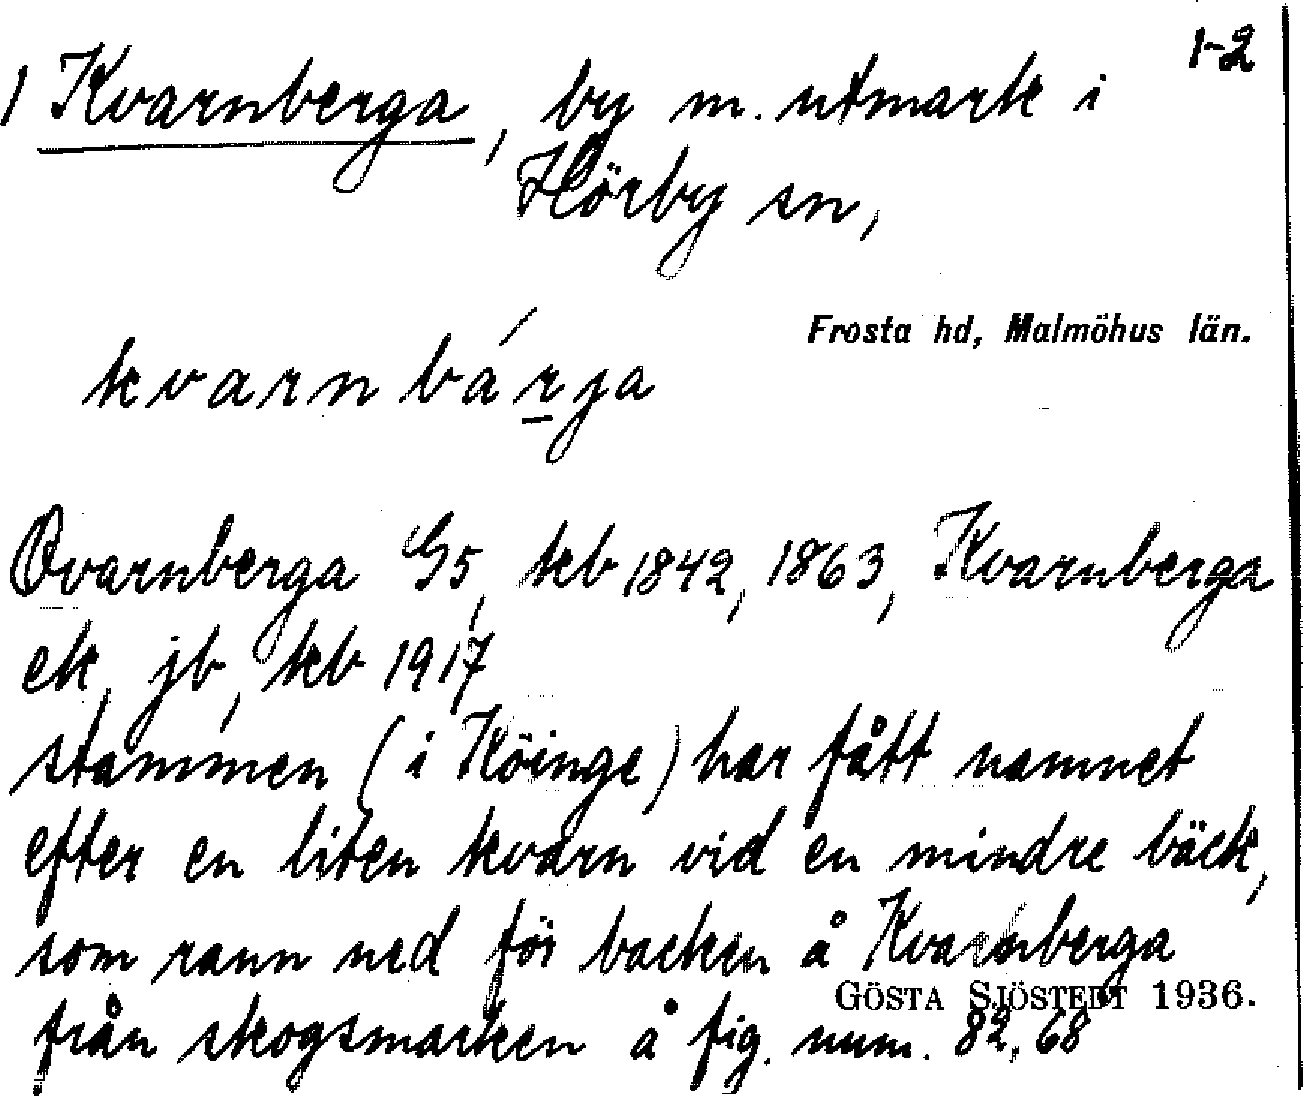 1-2
1 Kvarnberga, by m. utmark i
Hörby sn,
Frosta hd, Malmöhus län.
kvarnbárja
Qvarnberga G5, kb 1842, 1863, Kvarnberga
ek, jb, kb 1917
stammen (i Köinge) har fått namnet
efter en liten kvarn vid en mindre bäck,
som rann ned för backen å Kvarnberga
GÖSTA SJÖSTEDT 1936.
från skogsmarken å fig. num. 82, 68